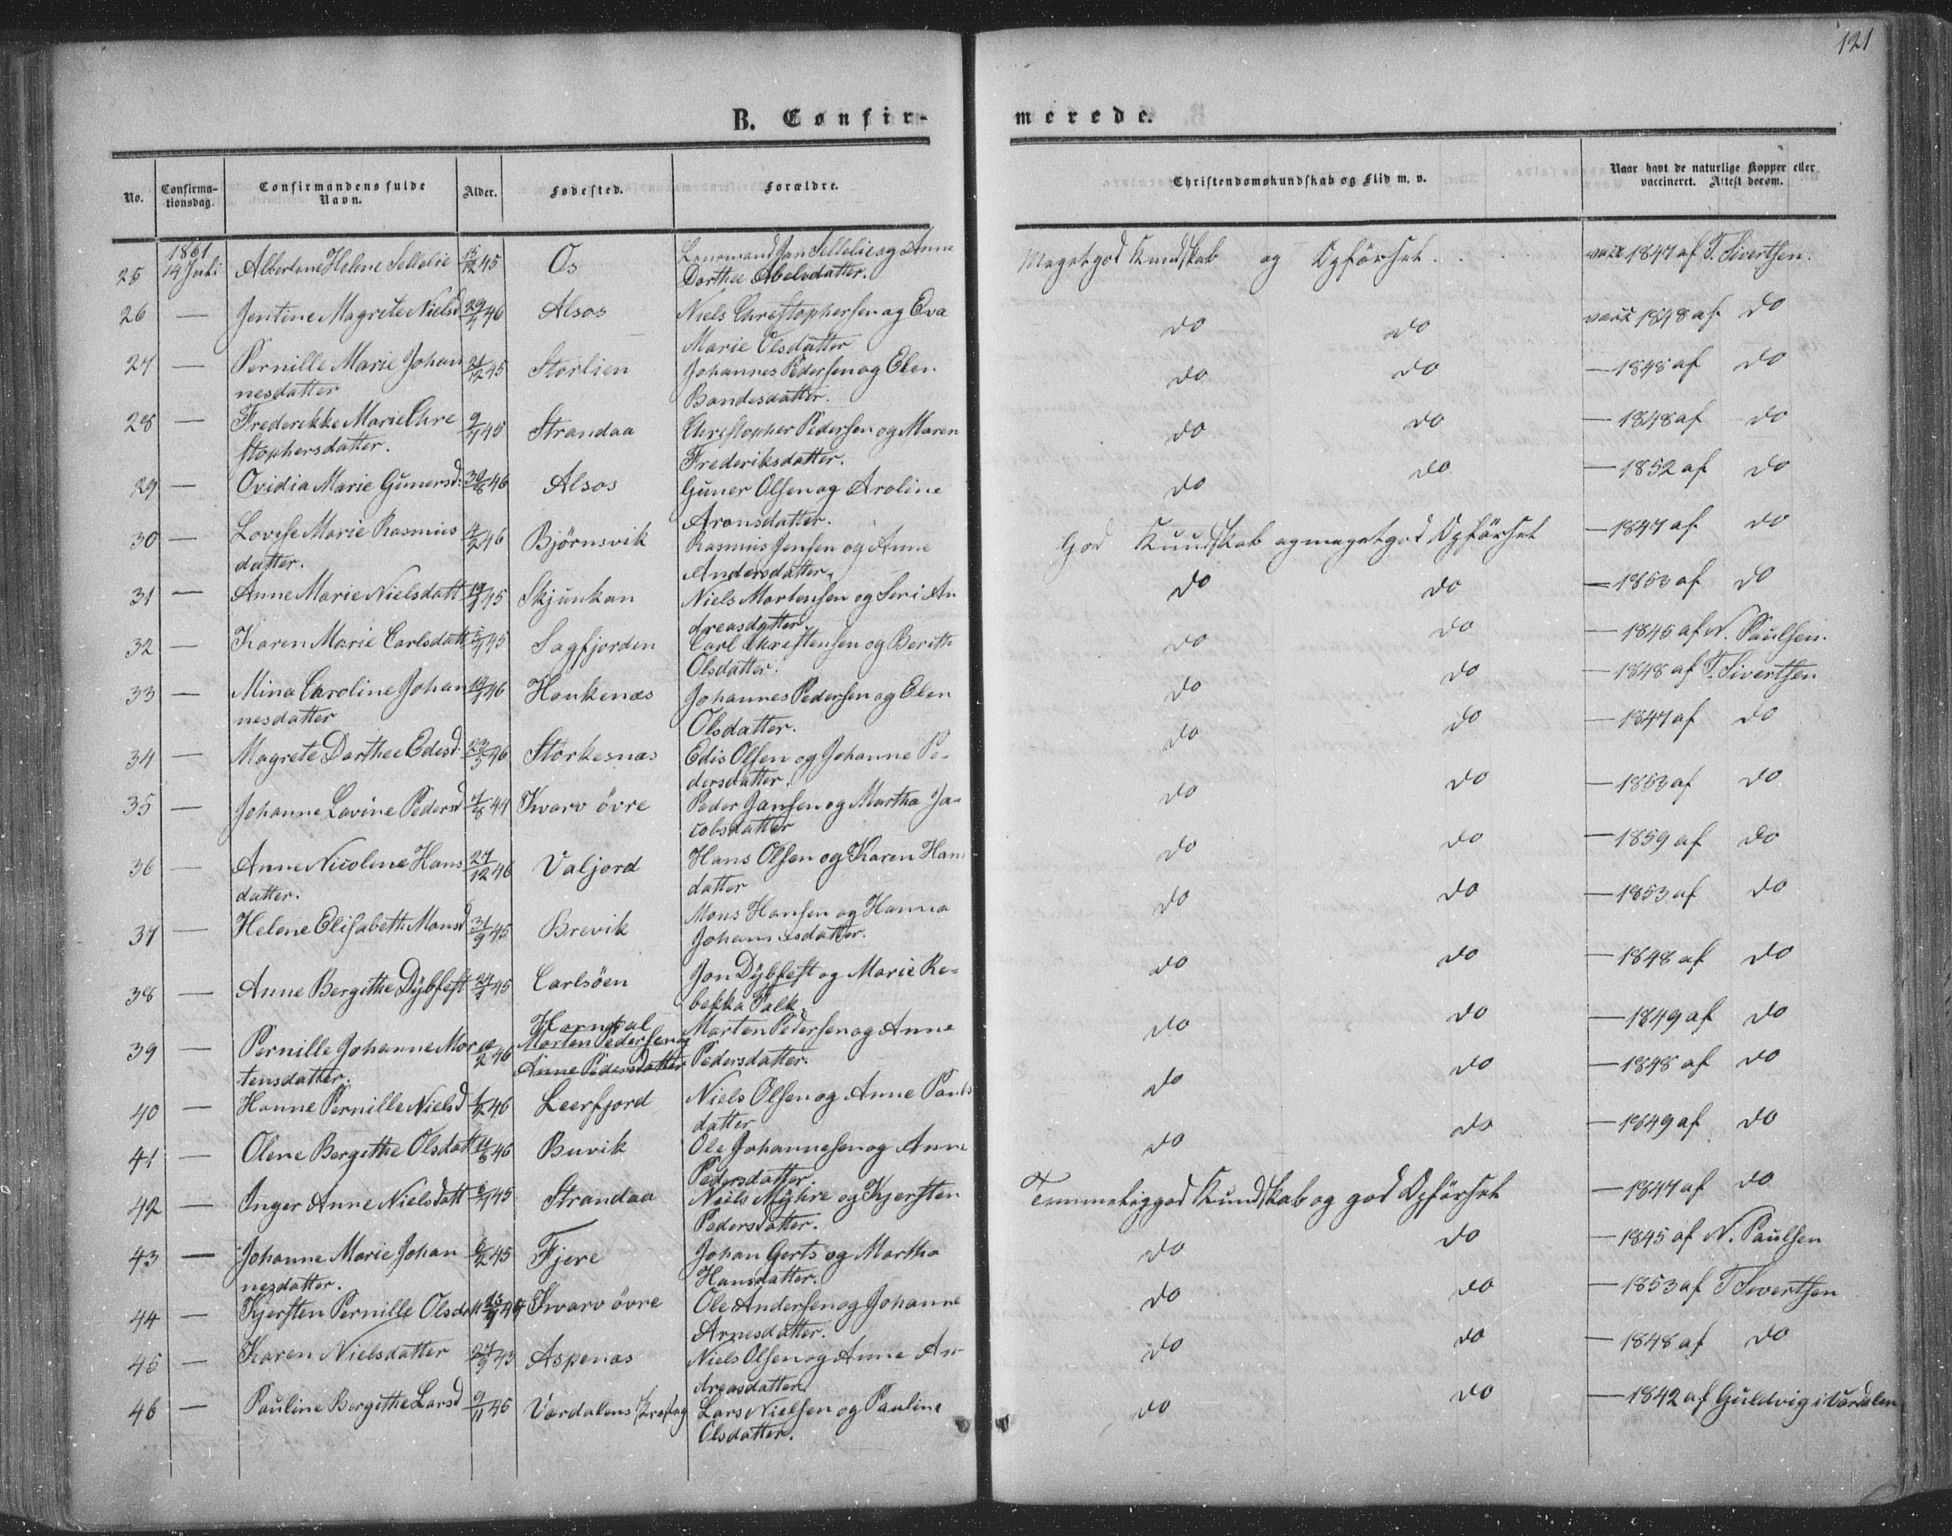 121
B. Confirmerede.
No. Confirmationsdag. Confirmandens fulde Navn. Alder. Fødested. Forældre. Christendomskundskab og Flid m. v. Naar havt de naturlige Kopper eller vaccineret. Attest derom.
1861
25 14 Juli Albertene Helene Sellelie 45 Os Jan Sellelie og Anne Dorthee Abelsdatter. Megetgod Kundskab og Opførsel. vacc 1847 af T. Sivertsen.
26 — Jentine Magrete Nielsd 46 Alsos Niels Christophersen og Eva Marie Olsdatter do do vacc 1848 af do
27 — Pernille Marie Johannesdatter 21/12 45 Storlien Johannes Pedersen og Elen Bandesdatter. do do — 1848 af do
28 — Frederikke Marie Chrestophersdatter. 45 Strandaa Christopher Pedersen og Maren Frederiksdatter. do do — 1848 af do
29 — Ovidia Marie Gunersd: 46 Alsos Guner Olsen og Aroline Aronsdatter. do do — 1852 af do
30 — Lovise Marie Rasmusdatter. 46 Bjørnsvik Rasmus Jensen og Anne Andersdatter. God Kundskab og megetgod Opførsel — 1847 af do
31 — Anne Marie Nielsdatt 45 Skjunkan Niels Mortensen og Seri Andreasdatter do do — 1853 af do
32 — Karen Marie Carlsdatt 45 Sagfjorden Carl Chrestensen og Berith Olsdatter. do do — 1845 af N. Paulsen.
33 — Mina Caroline Johannesdatter 46 Haukenæs Johannes Pedersen og Elen Olsdatter. do do — 1848 af T. Sivertsen
34 — Magrete Dorthee Edesd: 23/5 46 Storkesnæs Edis Olsen og Johanne Pedersdatter. do do — 1847 af do
35 — Johanne Lavine Pedersd 44 Kvarv øvre Peder Jansen og Martha Jacobsdatter do do — 1853 af do
36 — Anne Nicoline Hansdatter. 27/12 46 Valjord Hans Olsen og Karen Hansdatter do do — 1859 af do
37 — Helene Elisabeth Monsd 31/9 45 Brevik Mons Hansen og Hanna Johannesdatter. do do — 1853 af do
38 — Anne Bergithe Dÿbfest 45 Carlsöen Jon Dÿbfest og Marie Rebekka Falk. do do — 1848 af do
39 — Pernille Johanne Mortensdatter. 46 Morten Pedersen og Anne Pedersdatter Morten Pedersen og Anne Pedersdatter. do do — 1849 af do
40 — Hanne Pernille Nielsd 46 Leerfjord Niels Olsen og Anne Paulsdatter do do — 1848 af do
41 — Olene Bergithe Olsdat 46 Buvik Ole Johannesen og Anne Pedersdatter. do do — 1849 af do
42 — Inger Anne Nielsdatt 45 Strandaa Niels Mÿhre og Kjersten Pedersdatter. Temmeliggod Kundskab og god Opførsel — 1847 af do
43 — Johanne Marie Johannesdatter. 45 Fjere Johan Gerts og Martha Hansdatter. do do — 1845 af N. Paulsen
44 — Kjersten Pernille Olsdat Kvarv øvre Ole Andersen og Johanne Arnesdatter. do do — 1853 af T Sivertsen
45 — Karen Nielsdatter 43 Aspenæs Niels Olsen og Anne Andreasdatter do do — 1848 af do
46 — Pauline Bergithe Larsd 9/11 45 Værdalens Lars Nielsen og Pauline Olsdatter. do do — 1842 af Guldvig i Værdalen